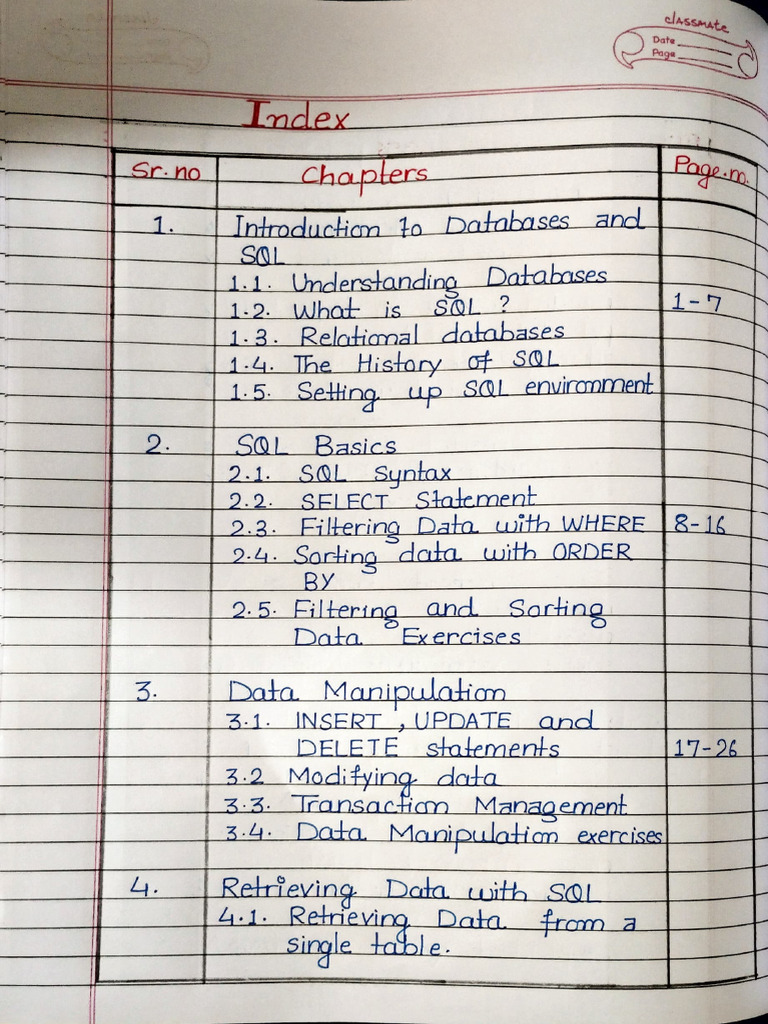 classmate
Date
Page
Index
Sr. no Chapters Page. no.
1. Introduction to Databases and
SQL
1.1. Understanding Databases
1.2. What is SQL ? 1-7
1.3. Relational databases
1.4. The History of SQL
1.5. Setting up SQL environment
2. SQL Basics
2.1. SQL Syntax
2.2. SELECT Statement
2.3. Filtering Data with WHERE 8-16
2.4. Sorting data with ORDER
BY
2.5. Filtering and Sorting
Data Exercises
3. Data Manipulation
3.1. INSERT , UPDATE and
DELETE statements 17-26
3.2 Modifying data
3.3. Transaction Management
3.4. Data Manipulation exercises
4. Retrieving Data with SQL
4.1. Retrieving Data from a
single table.